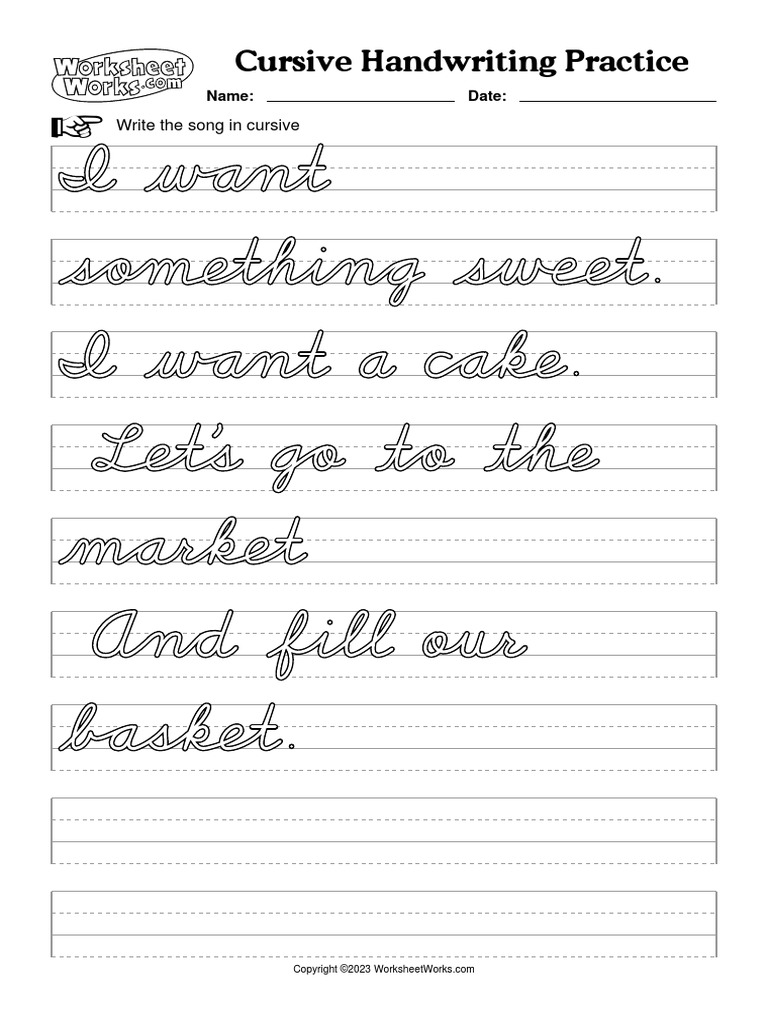 Worksheet
Works.com
Cursive Handwriting Practice
Name: Date:
Write the song in cursive
I want
something sweet.
I want a cake.
Let's go to the
market
And fill our
basket.
Copyright ©2023 WorksheetWorks.com